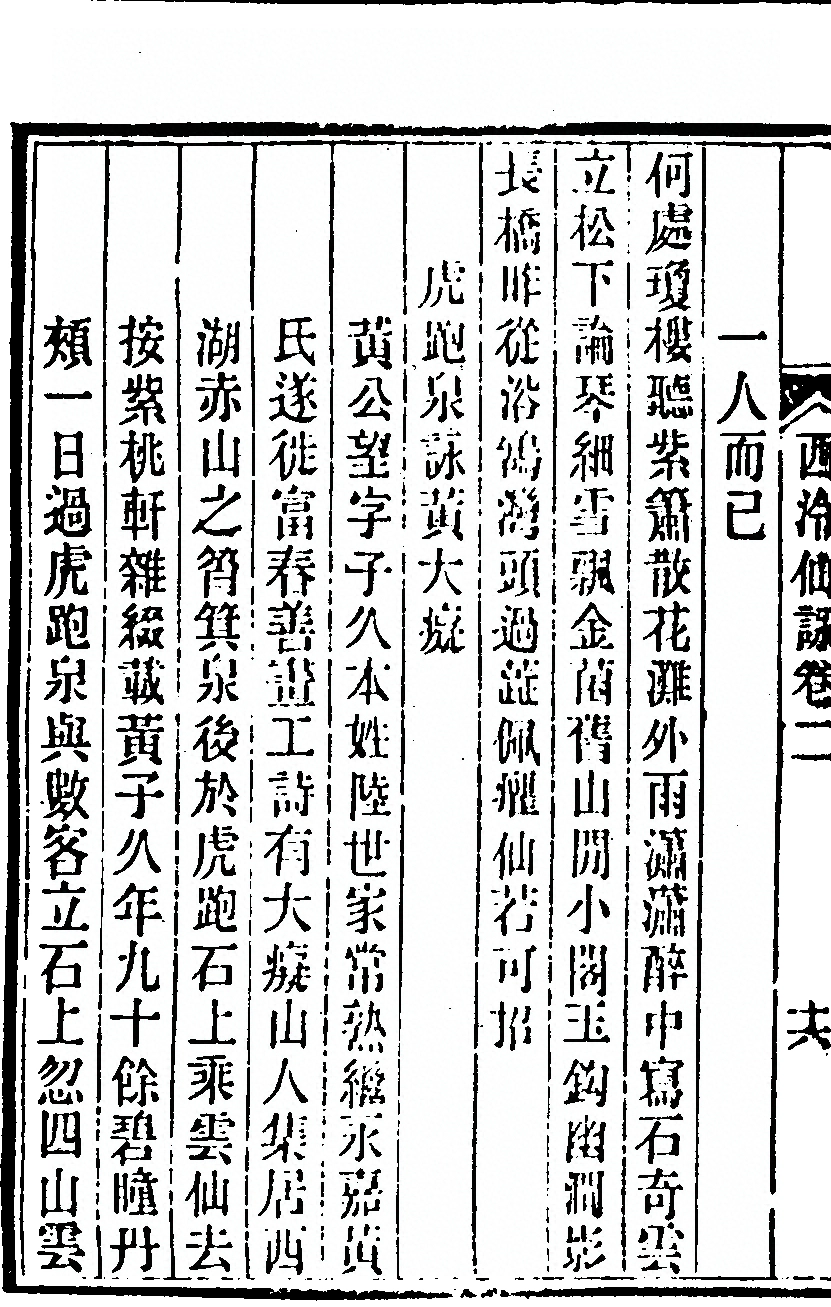 西泠仙詠卷二
十六
一人而已
何處瓊樓聽紫簫散花灘外雨瀟瀟醉中寫石奇雲
立松下論琴細雪飄金菌舊山開小閣玉鈎幽澗影
長橋昨從浴鵠灣頭過蓮佩癯仙若可招
虎跑泉詠黃大癡
黃公望字子久本姓陸世家常熟繼永嘉黃
氏遂徙富春善畫工詩有大癡山人集居西
湖赤山之筲箕泉後於虎跑石上乘雲仙去
按紫桃軒雜綴載黃子久年九十餘碧瞳丹
頰一日過虎跑泉與數客立石上忽四山雲